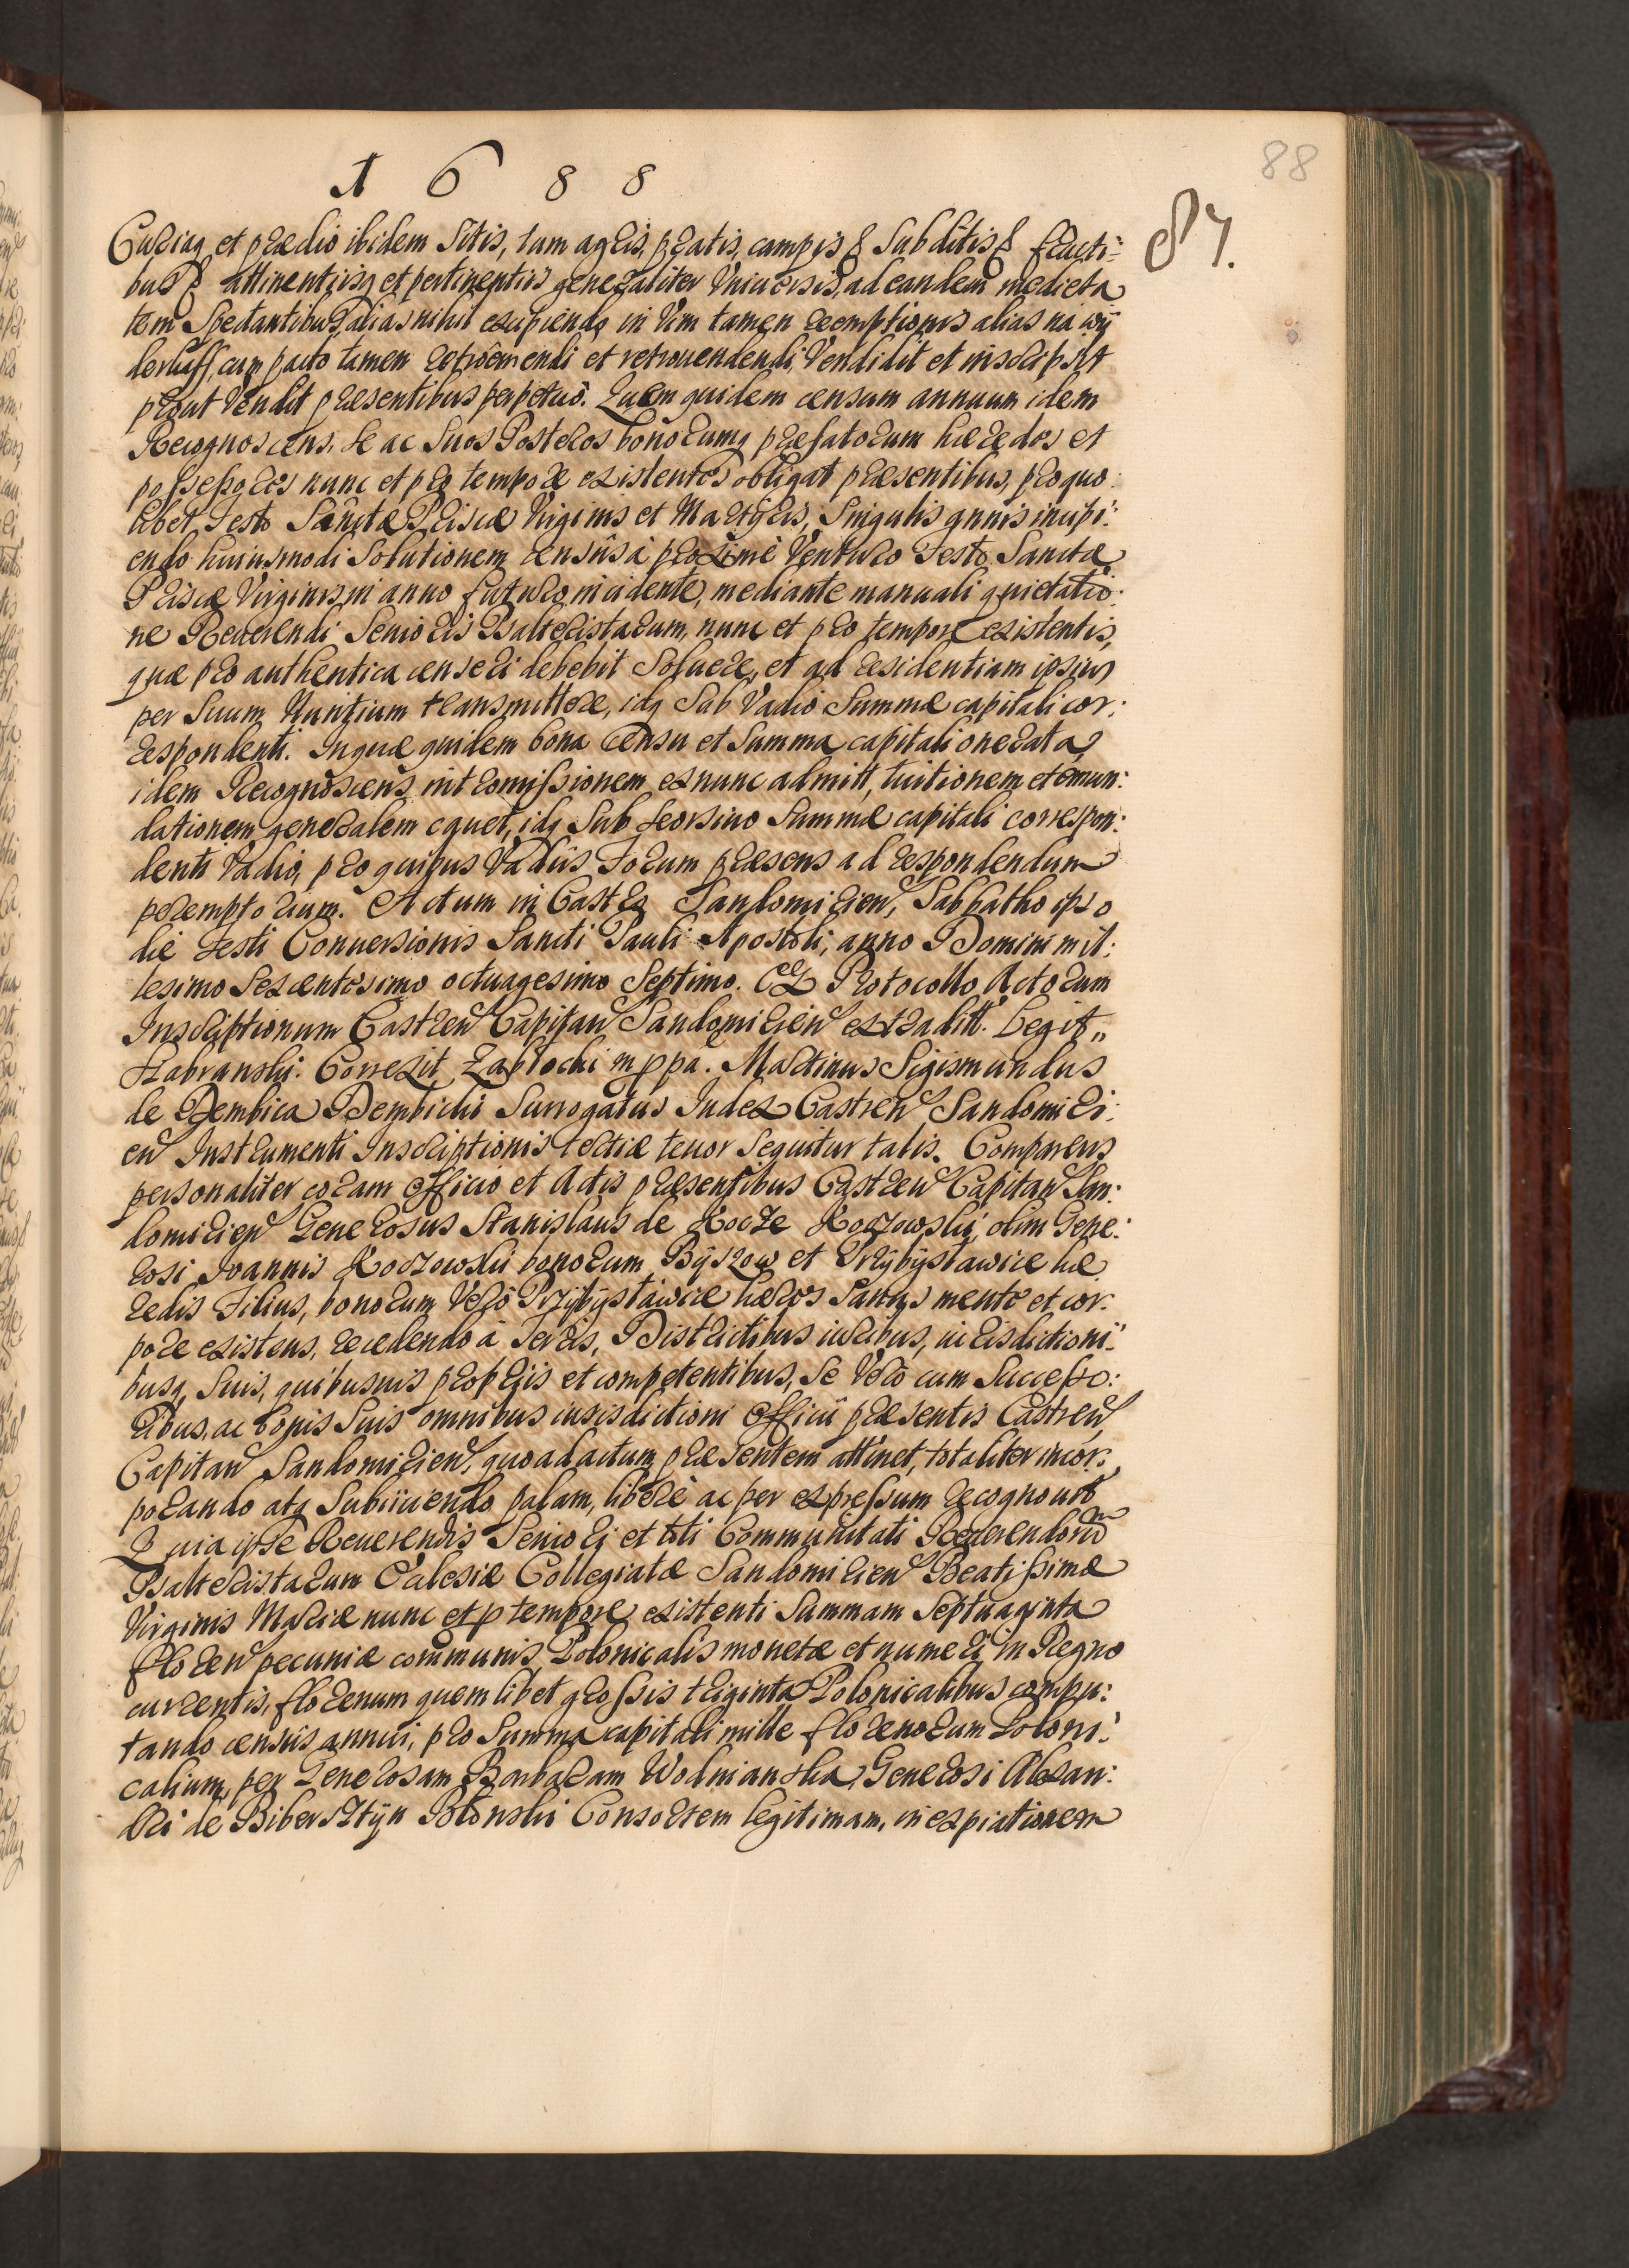 1688
88
87.
Curiaq et prædio ibidem Sitis, tum agris, pratis, campis Subditis fructi:
bus attinentijsq et pertinentiis generaliter Vniuersis, ad eandem medieta
tem Spectantibus, alias nihil excipiendo in Vim tamen reemptionis alias na wij
derkaff, cum pacto tamen retroemendi et retrouendendi, Vendidit et inscripsit
prout Vendit præsentibus perpetuò. Quem quidem censum annuum idem
Recognoscens, Se ac Suos Posteros bonorumq præfatorum hæredes et
possessores nunc et pro tempore existentes obligat præsentibus, pro quo:
libet Festo Sanctæ Priscæ Virginis et Martyris, Singulis annis incipi:
endo huiusmodi Solutionem censûs à proximè Venturo Festo Sanctæ
Priscæ Virginis, in anno futuro incidente, mediante manuali quietatio:
ne Reuerendi Senioris Psalteristarum, nunc et pro tempore existentis,
quæ pro authentica censeri debebit Soluere, et ad residentiam ipsius
per Suum Nuntium transmittere, idq Sub Vadio Summæ capitali cor:
respondenti. In quæ quidem bona Censu et Summa capitali onerata,
idem Recognoscens intromissionem exnunc admitt, tuitionem et emun:
dationem generalem cauet, idq Sub seorsiuo Summæ capitali correspon:
denti Vadio, pro quibus Vadiis Forum præsens ad respondendum
peremptorium. Actum in Castro Sandomirien, Sabbatho ipso
die Festi Conuersionis Sancti Pauli Apostoli, anno Domini mil:
lesimo Sexcentesimo octuagesimo Septimo. Ex Protocollo Actorum
Inscriptionum Castren Capitan Sandomirien extradítt. Legit„
Habranski. Correxit Zabłocki mppa. Martinus Sigismundus
de Dembica Dembicki Surrogatus Iudex Castren Sandomiri:
en Instrumenti Inscriptionis tertiæ tenor Sequitur talis. Comparens
personaliter coram Officio et Actis præsentibus Castren Capitan San:
domirien Generosus Stanislaus de Korze Korzowski, olim Gene:
rosi Ioannis Korzowski bonorum Byszow et Przybysławice hæ
redis Filius, bonorum Verò Przybysławice hæres Sanus mente et cor:
pore existens, recedendo à Terris, Districtibus iuribus, iurisdictioni:
busq Suis, quibusuis proprijs et competentibus, Se Verò cum Successo:
ribus, ac bonis Suis omnibus iurisdictioni Officii præsentis Castren
Capitan Sandomirien, quo ad actum præsentem attinet, totaliter incor:
porando atq Subiiciendo palam, liberè ac per expressum recognouit
Quia ipse Reuerendis Seniori et toti Communitati Reuerendorum
Psalteristarum Ecclesiæ Collegiatæ Sandomirien Beatissimæ
Virginis Mariæ nunc et p tempore existenti Summam Septuaginta
floren pecuniæ communis, Polonicalis monetæ et numeri in Regno
currentis, florenum quemlibet grossis triginta Polonicalibus compu:
tando censûs annui, pro Summa capitali mille florenorum Poloni:
calium, per Generosam Barbaram Wodnianska, Generosi Alexan:
dri de Bibersztyn Błonski Consortem legitimam, in expiationem